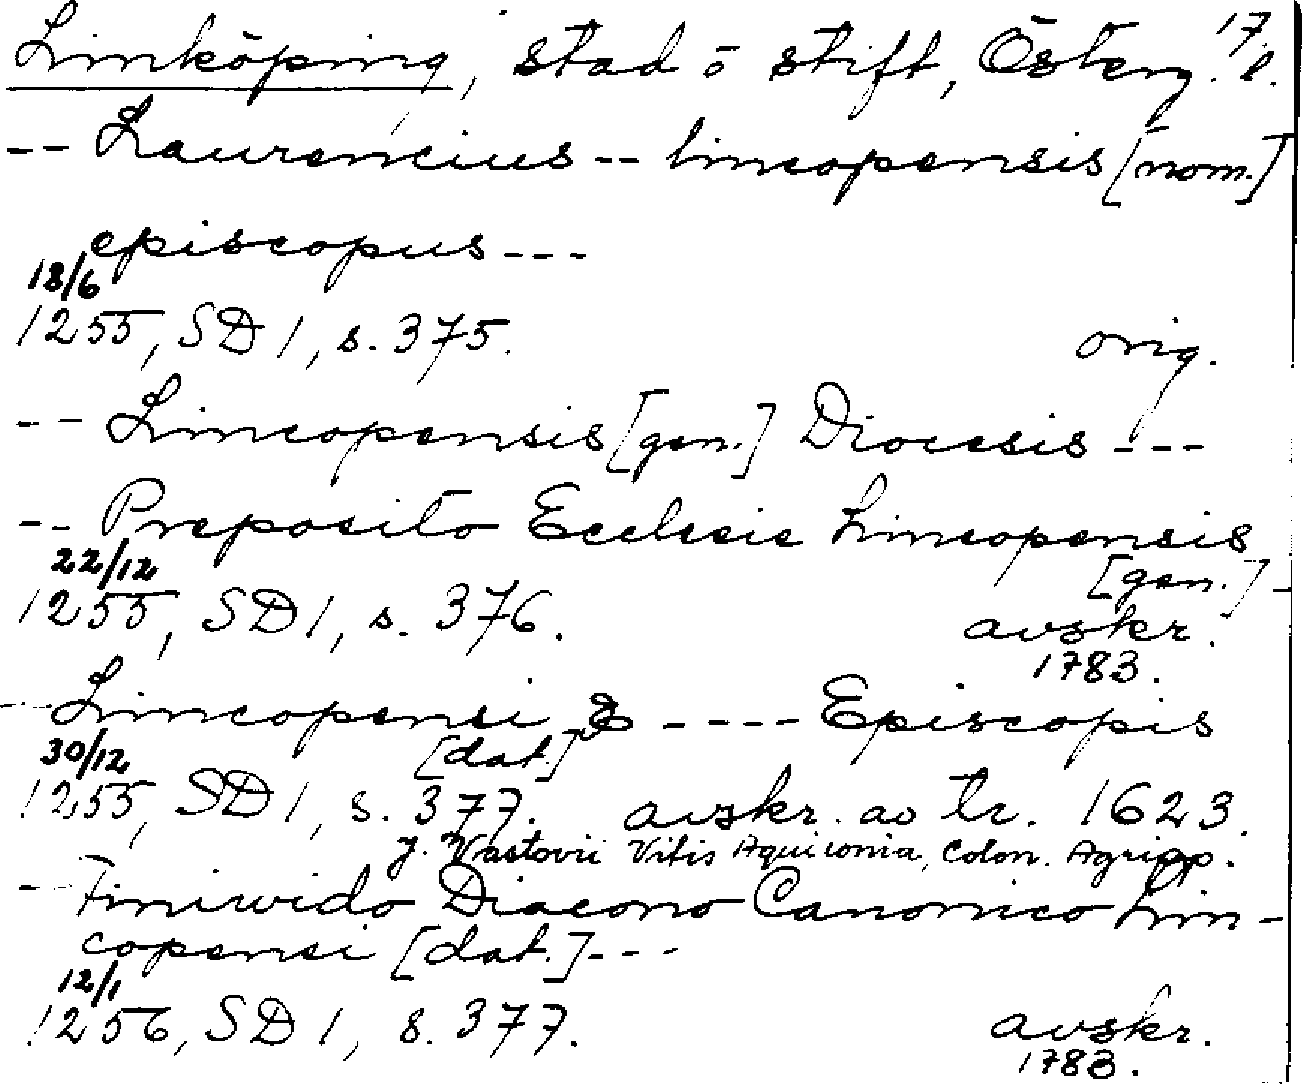 Linköping, stad o stift, Österg. l. 17.
-- Laurencius -- lincopensis [nom.]
episcopus ---
18/6
1255, SD 1, s. 375. orig.
-- Lincopensis [gen.] Diocesis ---
-- Preposito Ecclesie Lincopensis
[gen.] -
22/12
1255, SD 1, s. 376. avskr.
1783.
-- Lincopensi & ---- Episcopis
[dat.]
30/12
1255, SD 1, s. 377. avskr. av tr. 1623.
J. Vastovii Vitis Aquilonia, Colon. Agripp.
-- Finiwido Diacono Canonico Lin-
copensi [dat.] ---
12/1
1256, SD 1, s. 377. avskr.
1783.